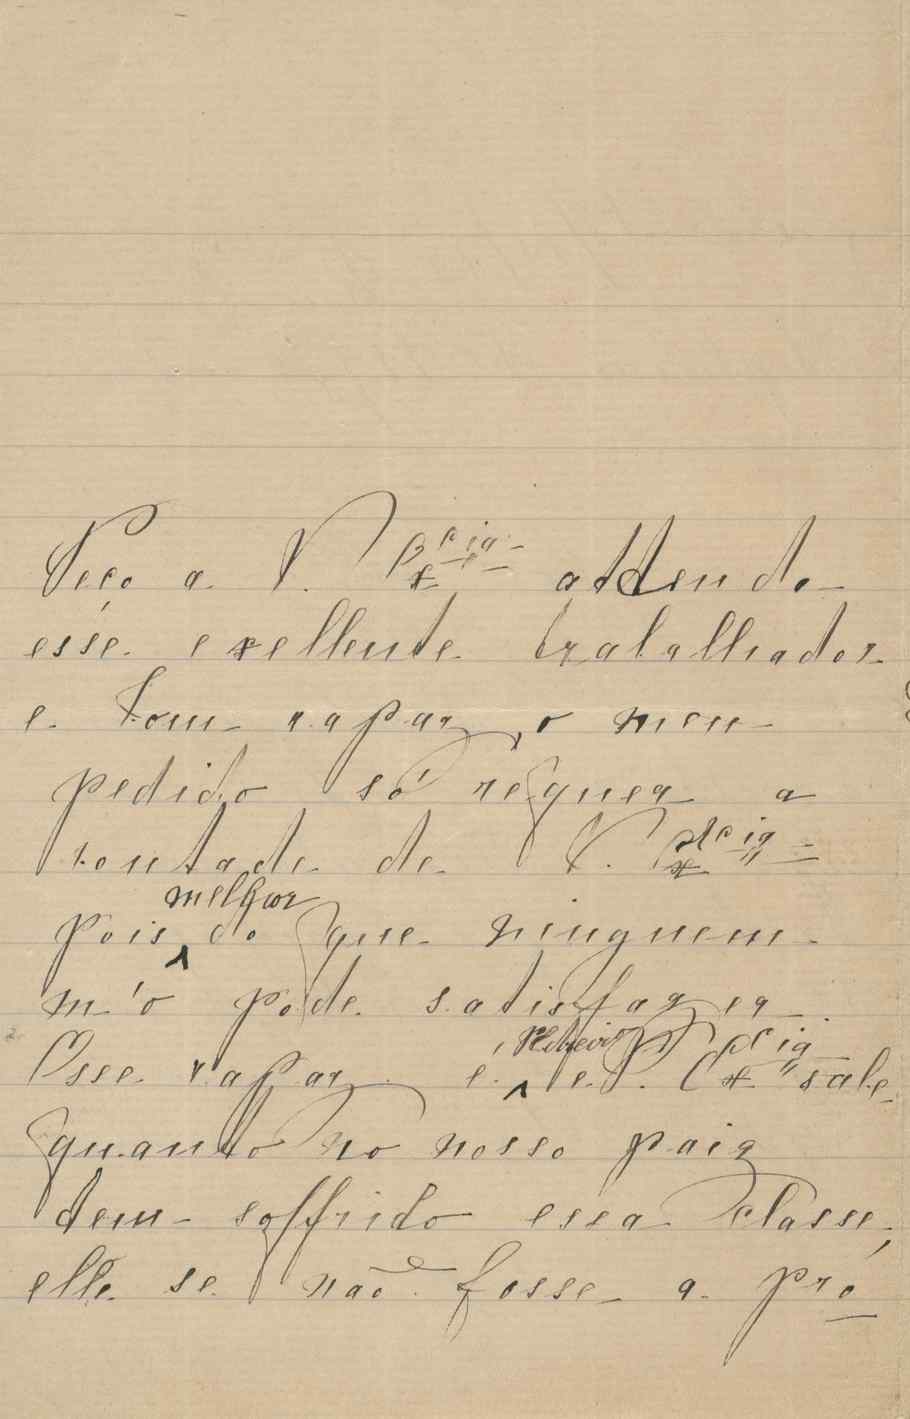 Peço a V. Excia attenda
esse exellente trabalhador
e bom rapaz, o meu
pedido só requer a
vontade de V. Excia
pois melhor do que ninguem
m'o pode satisfazer.
Esse rapaz é e V. Excia sabe
quanto no nosso paiz
tem soffrido essa classe,
elle se não fosse a pro